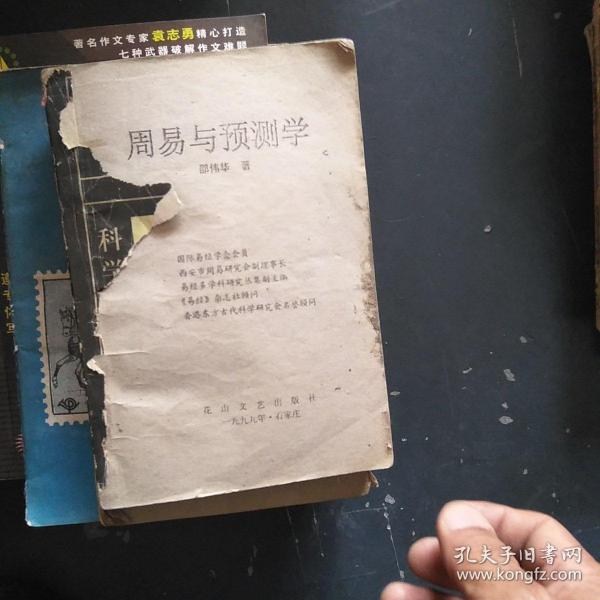 著名作文专家袁志勇精心打造
七种武器破解作文难题
周易与预测学
邵伟华 著
科学
国际易经学会会员
西安市周易研究会副理事长
易经多学科研究丛集副主编
《易经》杂志社顾问
香港东方古代科学研究会名誉顾问
花山文艺出版社
一九九九年·石家庄
孔夫子旧书网
www.kongfz.com